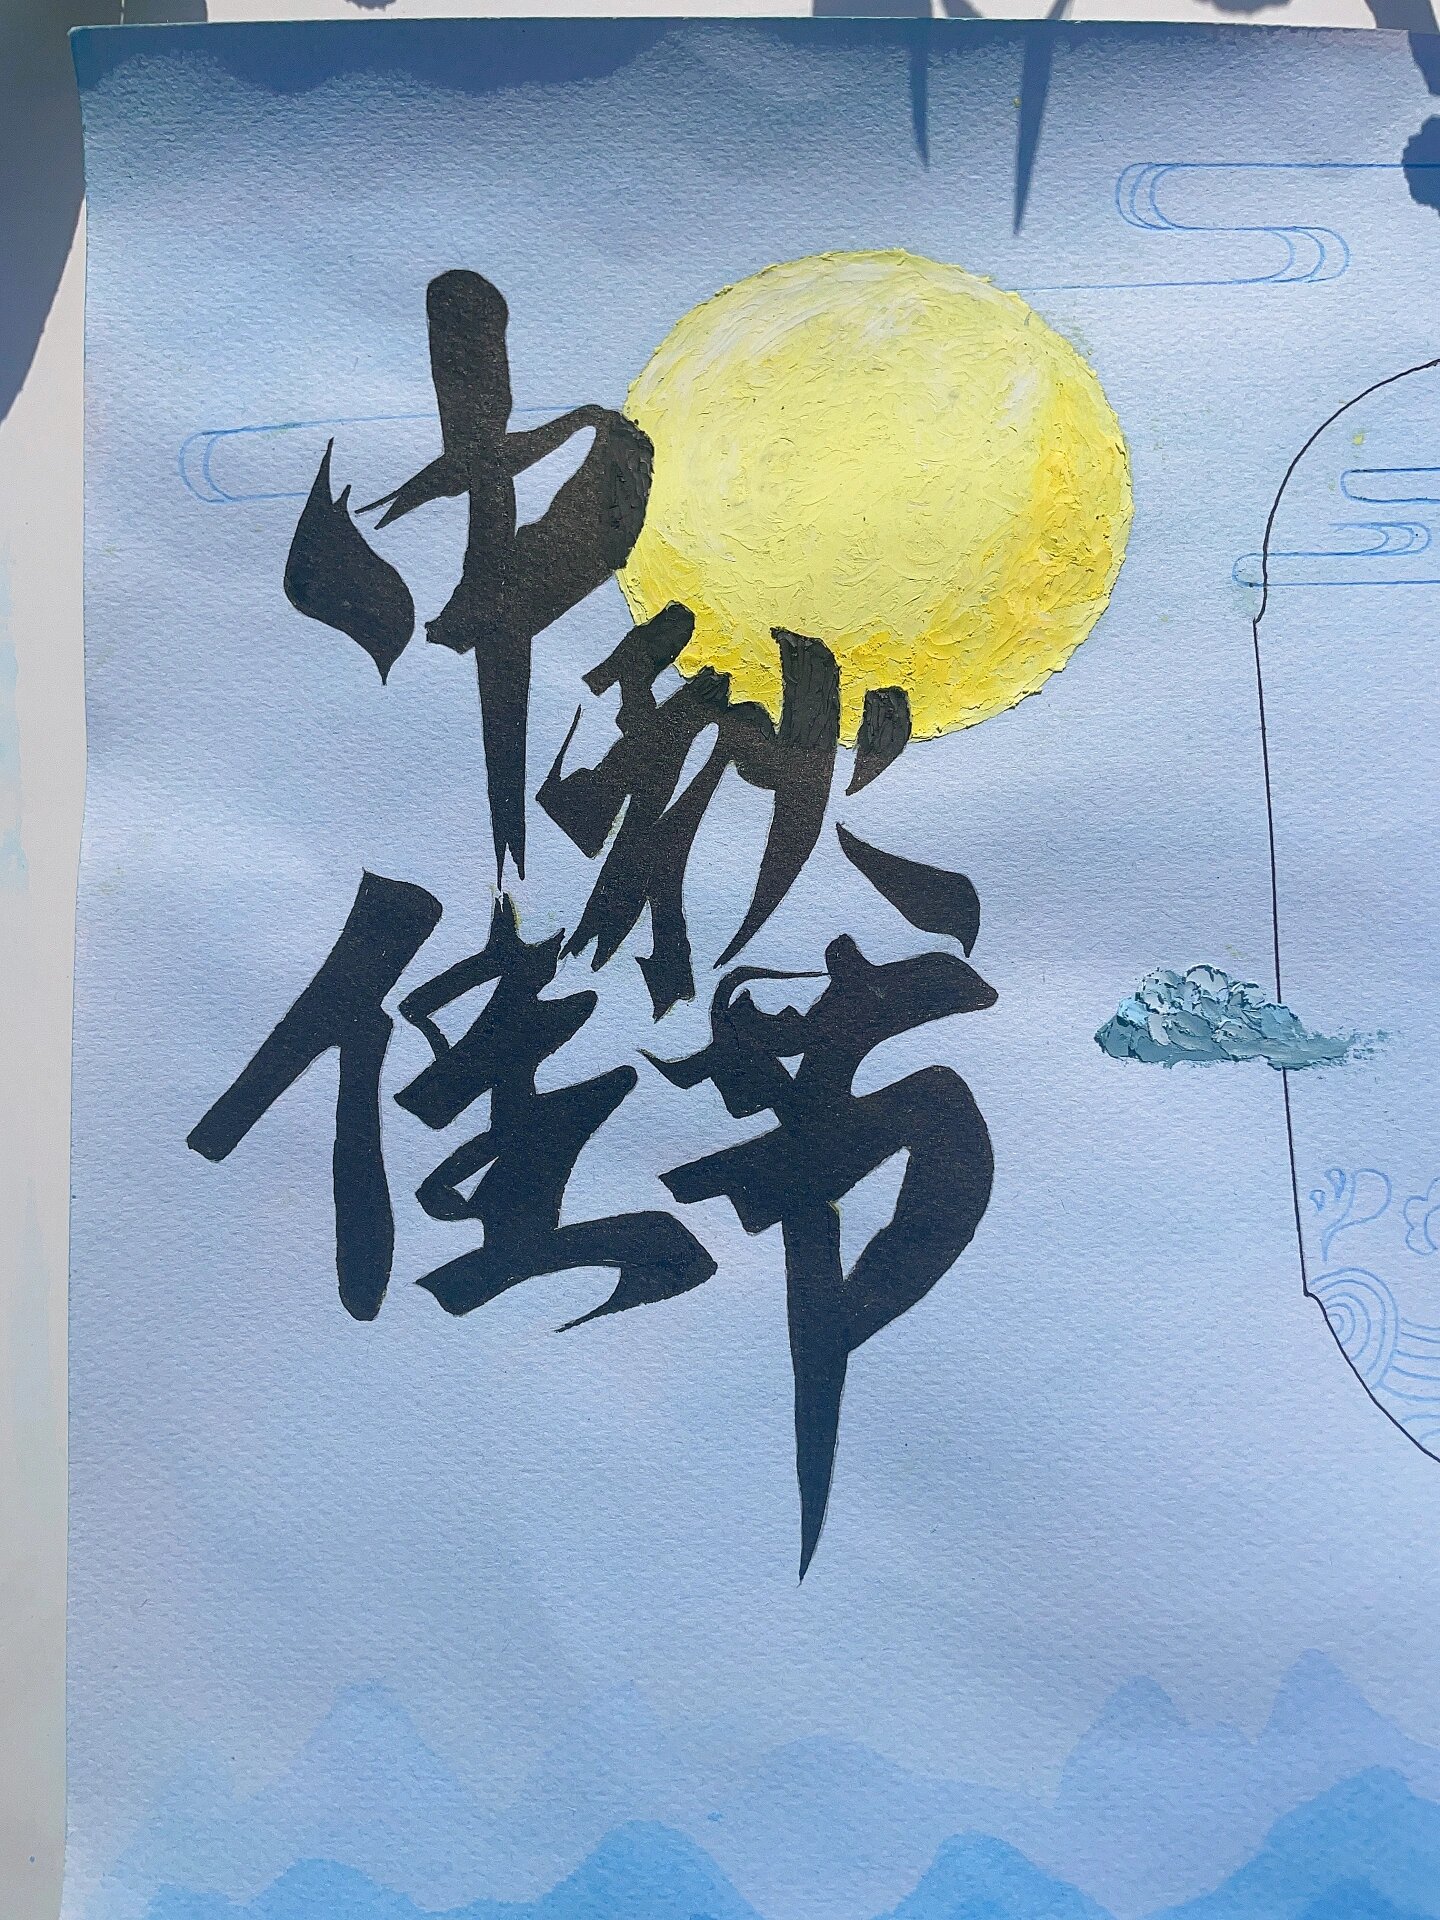 中秋
佳节